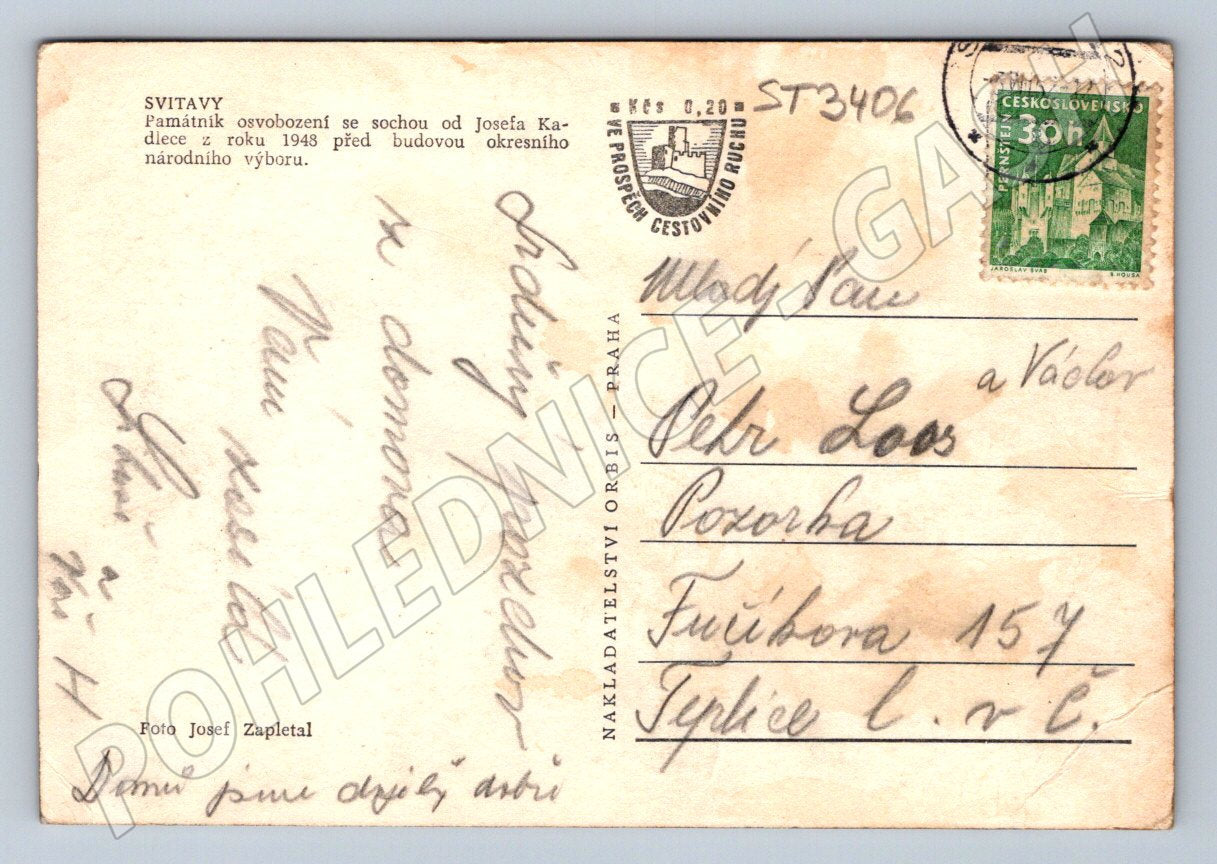 SVITAVY
Památník osvobození se sochou od Josefa Ka-
dlece z roku 1948 před budovou okresního
národního výboru.
Kčs 0,20
VE PROSPĚCH CESTOVNÍHO RUCHU
ST3406
ČESKOSLOVENSKO
30h
PERNŠTEJN
JAROSLAV ŠVÁB
Mladý Pan
a Václav
Petr Loos
Pozorka
Fučíkova 157
Teplice l. v Č.
NAKLADATELSTVÍ ORBIS – PRAHA
Srdečný pozdrav
z domova
Vám
a
H
Foto Josef Zapletal
Domů jsme dojely dobře
POHLEDNICE